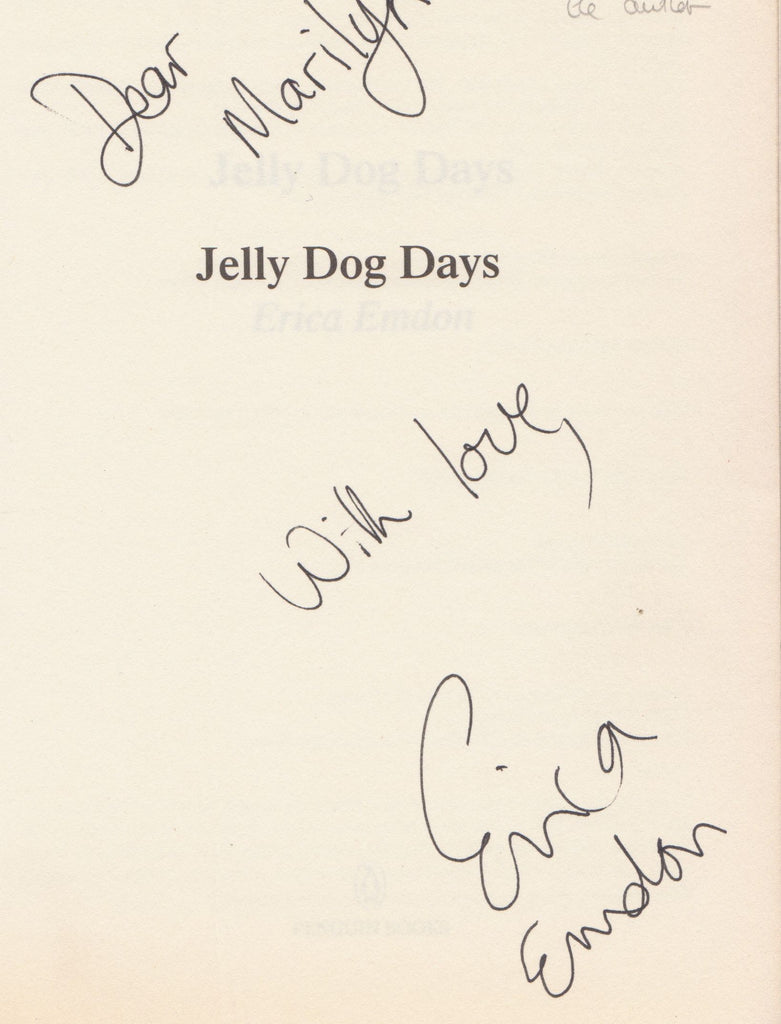 the author
Dear Marilyn
Jelly Dog Days
Jelly Dog Days
Erica Emdon
With love,
Erica
Emdon
PENGUIN BOOKS